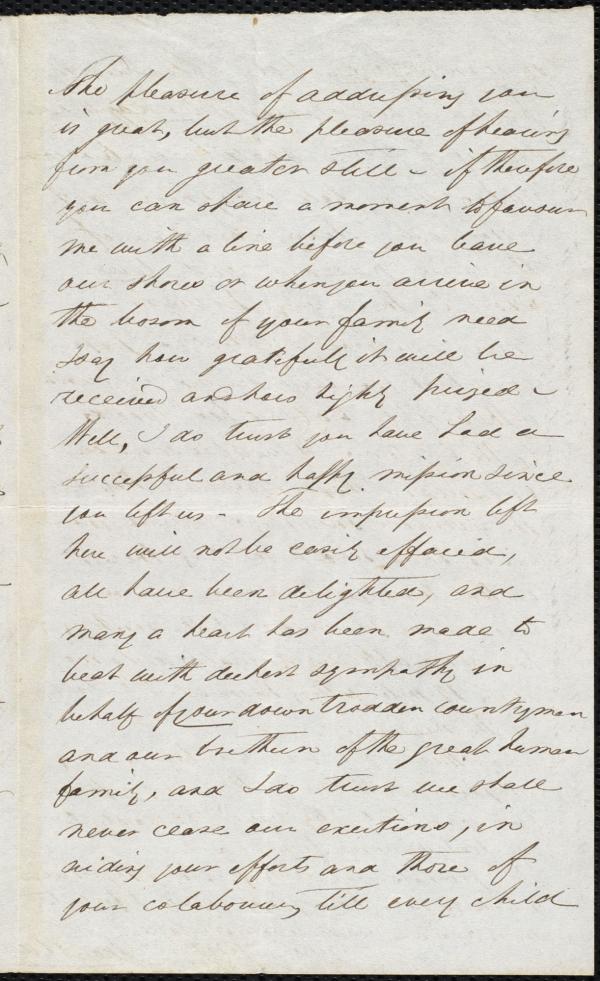 The pleasure of addressing you
is great, but the pleasure of hearing
from you greater still - if therefore
you can spare a moment to favour
me with a line before you leave
our shores or when you arrive in
the bosom of your family need
I say how gratefully it will be
received and how highly prized -
Well, I do trust you have had a
successful and happy mission since
you left us - The impression left
here will not be easily effaced,
all have been delighted, and
many a heart has been made to
beat with deepest sympathy in
behalf of your down trodden countryman
and our brethren of the great human
family, and I do trust we shall
never cease our exertions, in
aiding your efforts and those of
your colabourers, till every child